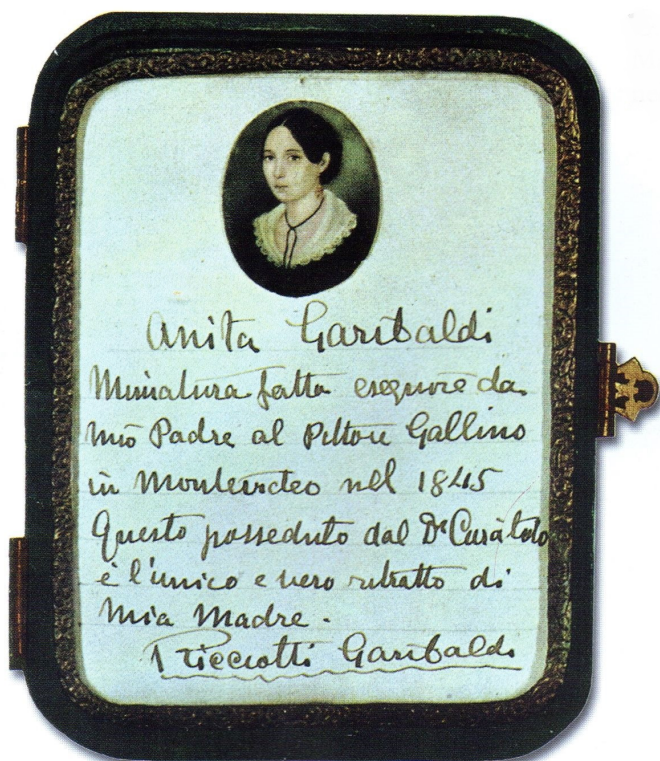 Anita Garibaldi
Miniatura fatta eseguire da
mio Padre al Pittore Gallino
in Montevideo nel 1845
Questo posseduto dal Dr Curàtolo
è l'unico e vero ritratto di
mia Madre.
Ricciotti Garibaldi